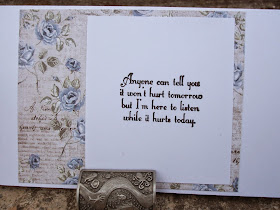 Anyone can tell you
it won't hurt tomorrow
but I'm here to listen
while it hurts today.